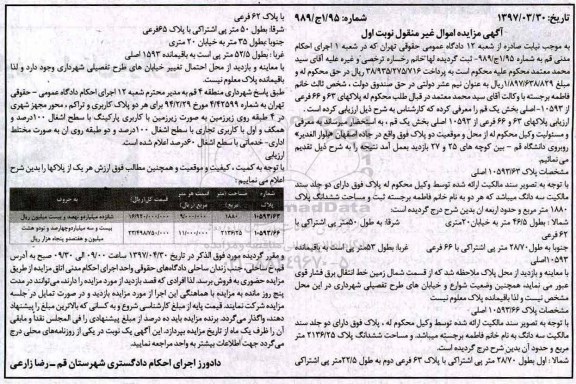 تاریخ: ۱۳۹۷/۰۳/۳۰ شماره: ۱/۹۵اج/۹۸۹
آگهی مزایده اموال غیر منقول نوبت اول
به موجب نیابت صادره از شعبه ۱۲ دادگاه عمومی حقوقی تهران که در شعبه ۱ اجرای احکام
مدنی قم به شماره ۱/۹۵اج/۹۸۹- ثبت گردیده لها خانم رخساره ترخصی و غیره علیه آقای سید
محمد معتمد محکوم علیه محکوم است به پرداخت ۳۸/۹۳۵/۲۷۵/۷۱۶ ریال در حق محکوم له و
۱/۸۹۷/۶۳۸/۸۲۹ ریال به عنوان نیم عشر دولتی در حق صندوق دولت، شخص ثالث خانم
فاطمه برجسته با وکالت آقای سید محمد معتمد در قبال طلب محکوم له پلاکهای ۶۳ و ۶۶ فرعی
از ۱۰۵۹۳- اصلی بخش یک قم را معرفی کرده که کارشناس به شرح ذیل ارزیابی کرده است.
ارزیابی پلاکهای ۶۳ و ۶۶ فرعی از ۱۰۵۹۳ اصلی بخش یک قم، به استحضار میرساند به معرفی
و مسئولیت وکیل محکوم له از محل و موقعیت دو پلاک فوق واقع در جاده اصفهان «بلوار الغدیر»
روبروی دانشگاه قم – بین کوچه های ۲۵ و ۲۷ بازدید بعمل آمد نتیجه را به شرح ذیل تقدیم
می نمائیم.
مشخصات پلاک ۱۰۵۹۳/۶۳ اصلی
با توجه به تصویر سند مالکیت ارائه شده توسط وکیل محکوم له پلاک فوق دارای دو جلد سند
مالکیت سه دانگ میباشد که هر دو به نام خانم فاطمه برجسته ثبت و مساحت ششدانگ پلاک
۱۸۸۰ متر مربع و حدود اربعه آن بدین شرح درج گردیده است:
شمالا: بطول ۴۶/۵ متر به خیابان ۲۰متری شرقا: به طول ۵۰متر پی اشتراکی با
۶۲فرعی
جنوبا به طول ۲۸/۷۰ متر پی اشتراکی با ۶۶ فرعی غربا: بطول ۵۳متر پی است به باقیمانده
۱۰۵۹۳اصلی
با معاینه و بازدید از محل پلاک ملاحظه شد که از قسمت شمال زمین خط انتقال برق فشار قوی
عبور می نماید، همچنین وضعیت شوارع و خیابان های طرح تفصیلی شهرداری در این محل
مشخص نیست و لذا باقیمانده پلاک معلوم نیست
مشخصات پلاک ۱۰۵۹۳/۶۶ اصلی
با توجه به تصویر سند مالکیت ارائه شده توسط وکیل محکوم له، پلاک فوق دارای دو جلد سند
مالکیت سه دانگ به نام خانم فاطمه برجسته میباشد و مساحت ششدانگ پلاک ۲۱۳۶/۲۵ متر
مربع و حدود آن بدین شرح درج گردیده است.
شمالا: اول بطول ۲۸/۷۰ متر پی اشتراکی با پلاک ۶۳ فرعی دوم به طول ۲۲/۵متر پی اشتراکی
با پلاک ۶۲ فرعی
شرقا: بطول ۵۰ متر پی اشتراکی با پلاک ۶۵فرعی
جنوبا بطول ۳۵ متر به خیابان ۲۰ متری
غربا: بطول ۵۲/۵ متر پی است به باقیمانده ۱۵۹۳ اصلی
با معاینه و بازدید از محل احتمال تغییر خیابان های طرح تفصیلی شهرداری وجود دارد و لذا
باقیمانده پلاک معلوم نیست.
طبق پاسخ شهرداری منطقه ۴ قم به مدیر محترم شعبه ۱۲ اجرای احکام دادگاه عمومی – حقوقی
تهران به شماره ۴/۴۲۵۹۹ مورخ ۹۴/۲/۲۹ برای هر دو پلاک کاربری و تراکم، محور مجهز شهری
در ۴ طبقه روی زیرزمین به صورت زیرزمین با کاربری پارکینگ با سطح اشغال ۱۰۰درصد و
همکف و اول با کاربری تجاری با سطح اشغال ۱۰۰درصد و دو طبقه روی ان به صورت مختلط
اداری- خدماتی با سطح اشغال ۶۰درصد اعلام شده است.
ارزیابی
با توجه به کمیت، کیفیت و موقعیت و همچنین مطالب فوق ارزش هر یک از پلاکها را بدین شرح
اعلام می نماییم:
شماره پلاک مساحت (متر) قیمت هر متر مربع (ریال) قیمت کل (ریال) به حروف
۱۰۵۹۳/۶۳ ۱۸۸۰ ۹/۰۰۰/۰۰۰ ۱۶/۹۲۰/۰۰۰/۰۰۰ شانزده میلیارد و نهصد و بیست میلیون ریال
۱۰۵۹۳/۶۶ ۲۱۳۶/۲۵ ۱۱/۰۰۰/۰۰۰ ۲۳/۴۹۸/۷۵۰/۰۰۰ بیست و سه میلیارد و چهارصد و نود و هشت میلیون و هفتصد و پنجاه هزار ریال
و مقرر گردید مورد فوق الذکر در تاریخ ۱۳۹۷/۰۴/۳۰ ساعت ۰۹/۰۰ الی ۰۹/۳۰ صبح به آدرس
قم، خ ساحلی، جنب زندان ساحلی دادگاههای حقوقی واحد اجرای احکام مدنی اتاق مزایده از طریق
مزایده حضوری به فروش برسد. لذا افرادی که قصد بازدید از مورد مزایده را دارند، می توانند در مدت
پنج روز مانده به مزایده با هماهنگی این اجرا از مورد مزایده بازدید و در صورت تمایل در جلسه
مزایده شرکت نمایند. قیمت پایه از مبلغ کارشناسی شروع و به کسانی که بالاترین مبلغ را پیشنهاد
دهند، واگذار می گردد. برنده مزایده باید ده درصد از مبلغ پیشنهادی را فی المجلس نقدا و مابقی
آن را ظرف یک ماه از تاریخ مزایده بپردازد. این آگهی یک نوبت در یکی از روزنامه‌های محلی درج
می گردد جهت اطلاعات بیشتر به واحد مراجعه نمایید.
دادورز اجرای احکام دادگستری شهرستان قم – رضا زارعی